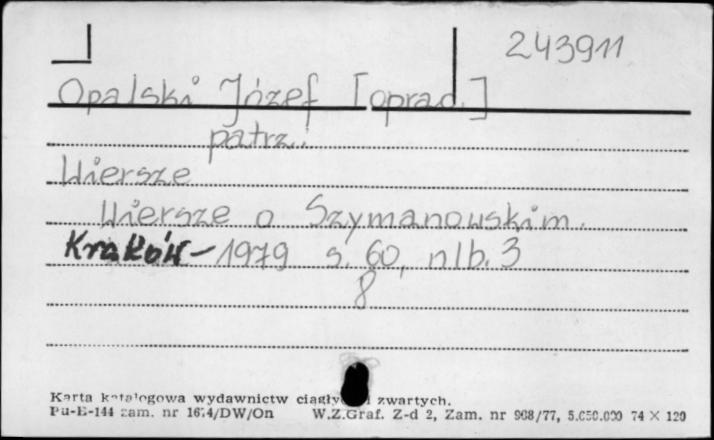 243911
Opalski Józef [oprad.]
patrz:
Wiersze
Wiersze o Szymanowskim.
Kraków - 1979 s. 60, nlb. 3
8
Karta katalogowa wydawnictw i zwartych.
Pu-E-144 zam. nr 1674/DW/On W.Z.Graf. Z-d 2, Zam. nr 908/77, 5.050.000 74 × 120